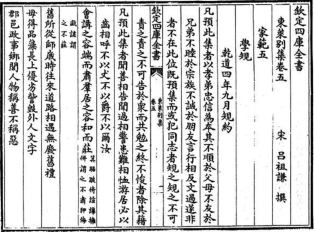 欽定四庫全書
東萊別集卷五
宋 呂祖謙 撰
家範五
學規
乾道四年九月規約
凡預此集者以孝弟忠信為本其不順於父母不友於
兄弟不睦於宗族不誠於朋友言行相反文過遂非
者不在此位既預集而或犯同志者規之規之不可
責之責之不可告於衆而共勉之終不悛者除其籍
凡預此集者聞善相告聞過相警患難相恤游居必以
齒相呼不以丈不以爵不以爾汝
會講之容端而肅羣居之容和而莊
舊所從師歲時往來道路相遇無廢舊禮
毋得品藻長上優劣訾毀外人文字
郡邑政事鄉閭人物稱善不稱惡